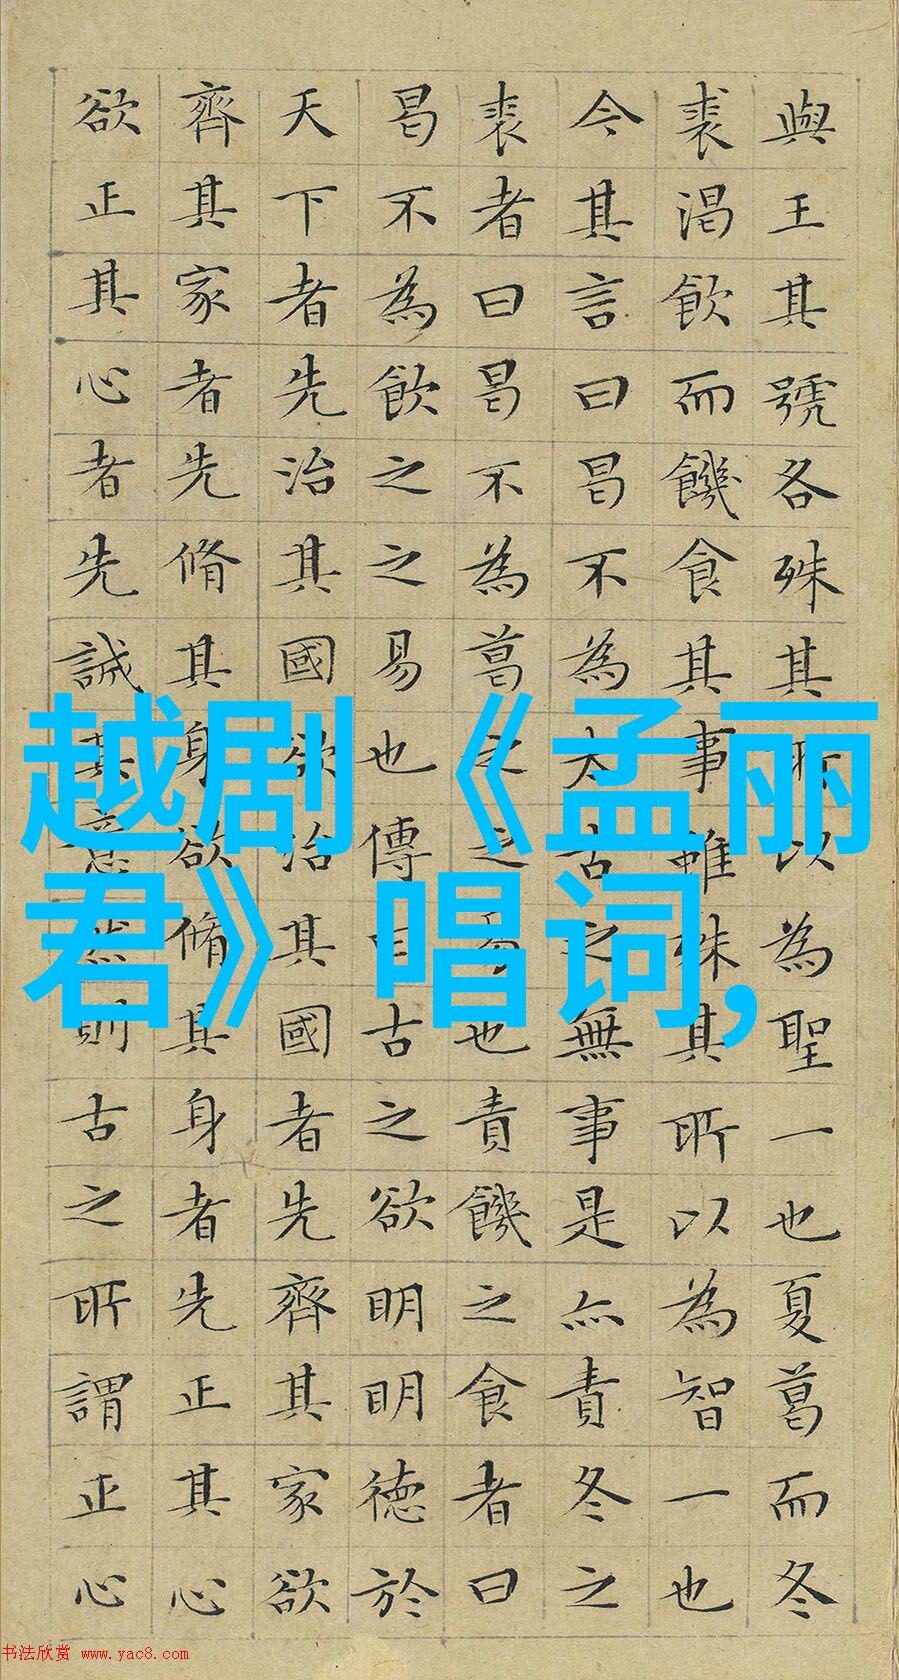 與王其號各殊其所以為聖一也夏葛而冬
裘渴飲而饑食其事雖殊其所以為智一也
今其言曰曷不為太古之無事是亦責冬之
裘者曰曷不為葛之之易也責饑之食者曰
曷不為飲之之易也傳曰古之欲明明德於
天下者先治其國欲治其國者先齊其家欲
齊其家者先脩其身欲脩其身者先正其心
欲正其心者先誠其意然則古之所謂正心
越剧《孟丽
君》唱词,
书法欣赏 www.yac8.com